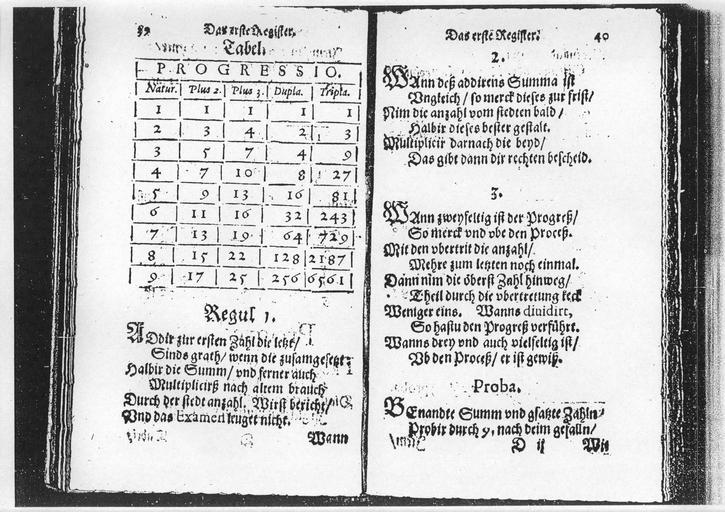 39
Das erste Register.
Tabel.
PROGRESSIO.
Natur. Plus 2. Plus 3. Dupla. Tripla.
1 1 1 1 1
2 3 4 2 3
3 5 7 4 9
4 7 10 8 27
5 9 13 16 81
6 11 16 32 243
7 13 19 64 729
8 15 22 128 2187
9 17 25 256 6561
Regul 1.
ADdir zur ersten Zahl die letzt/
Sinds grath/ wenn die zusamgesetzt
Halbir die Summ/ vnd ferner auch
Multiplicirß nach altem brauch
Durch der stedt anzahl. Wirst bericht/
Vnd das Examen leuget nicht.
Wann
Das erste Register.
40
2.
WAnn deß addirens Summa ist
Vngleich/ so merck dieses zur frist/
Nim die anzahl vom stedten bald/
Halbir dieses bester gestalt.
Multiplicir darnach die beyd/
Das gibt dann dir rechten bescheid.
3.
WAnn zweyfeltig ist der Progreß/
So merck vnd vbe den Proceß.
Mit den vbertrit die anzahl/
Mehre zum letzten noch einmal.
Dann nim die öberst Zahl hinweg/
Theil durch die vbertretung keck
Weniger eins. Wanns dividirt,
So hastu den Progreß verführt.
Wanns drey vnd auch vielfeltig ist/
Vb den Proceß/ er ist gewiß.
Proba.
BEnandte Summ vnd gsatzte Zahln
Probir durch 9, nach deim gefalln/
D ij
Mit